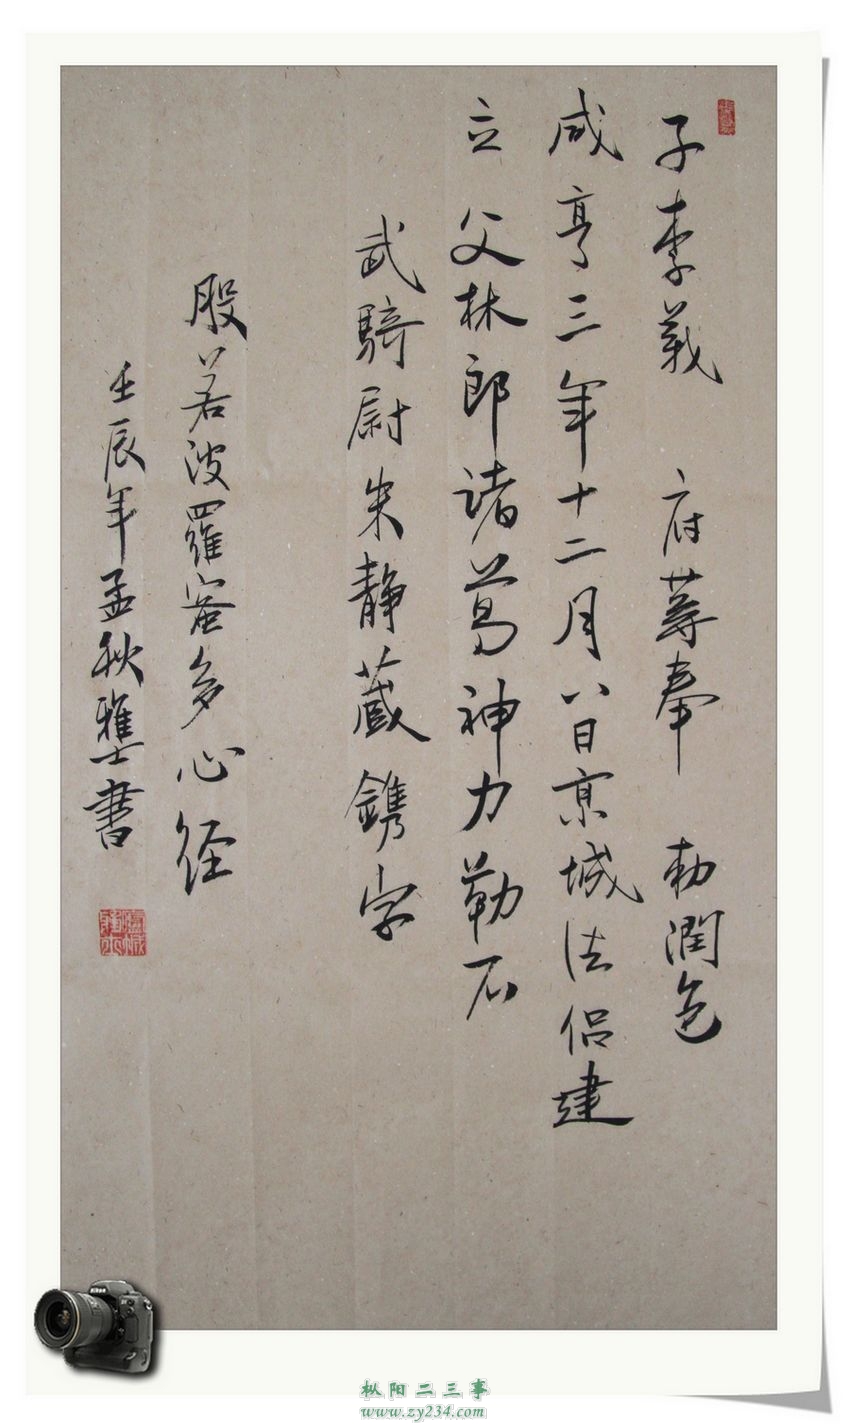 子李義 府等奉 勅潤色
咸亨三年十二月八日京城法侣建
立 父林郎诸葛神力勒石
武騎尉朱静藏鐫字
般若波羅蜜多心经
壬辰年孟秋雅士書
枞阳二三事
www.zy234.com